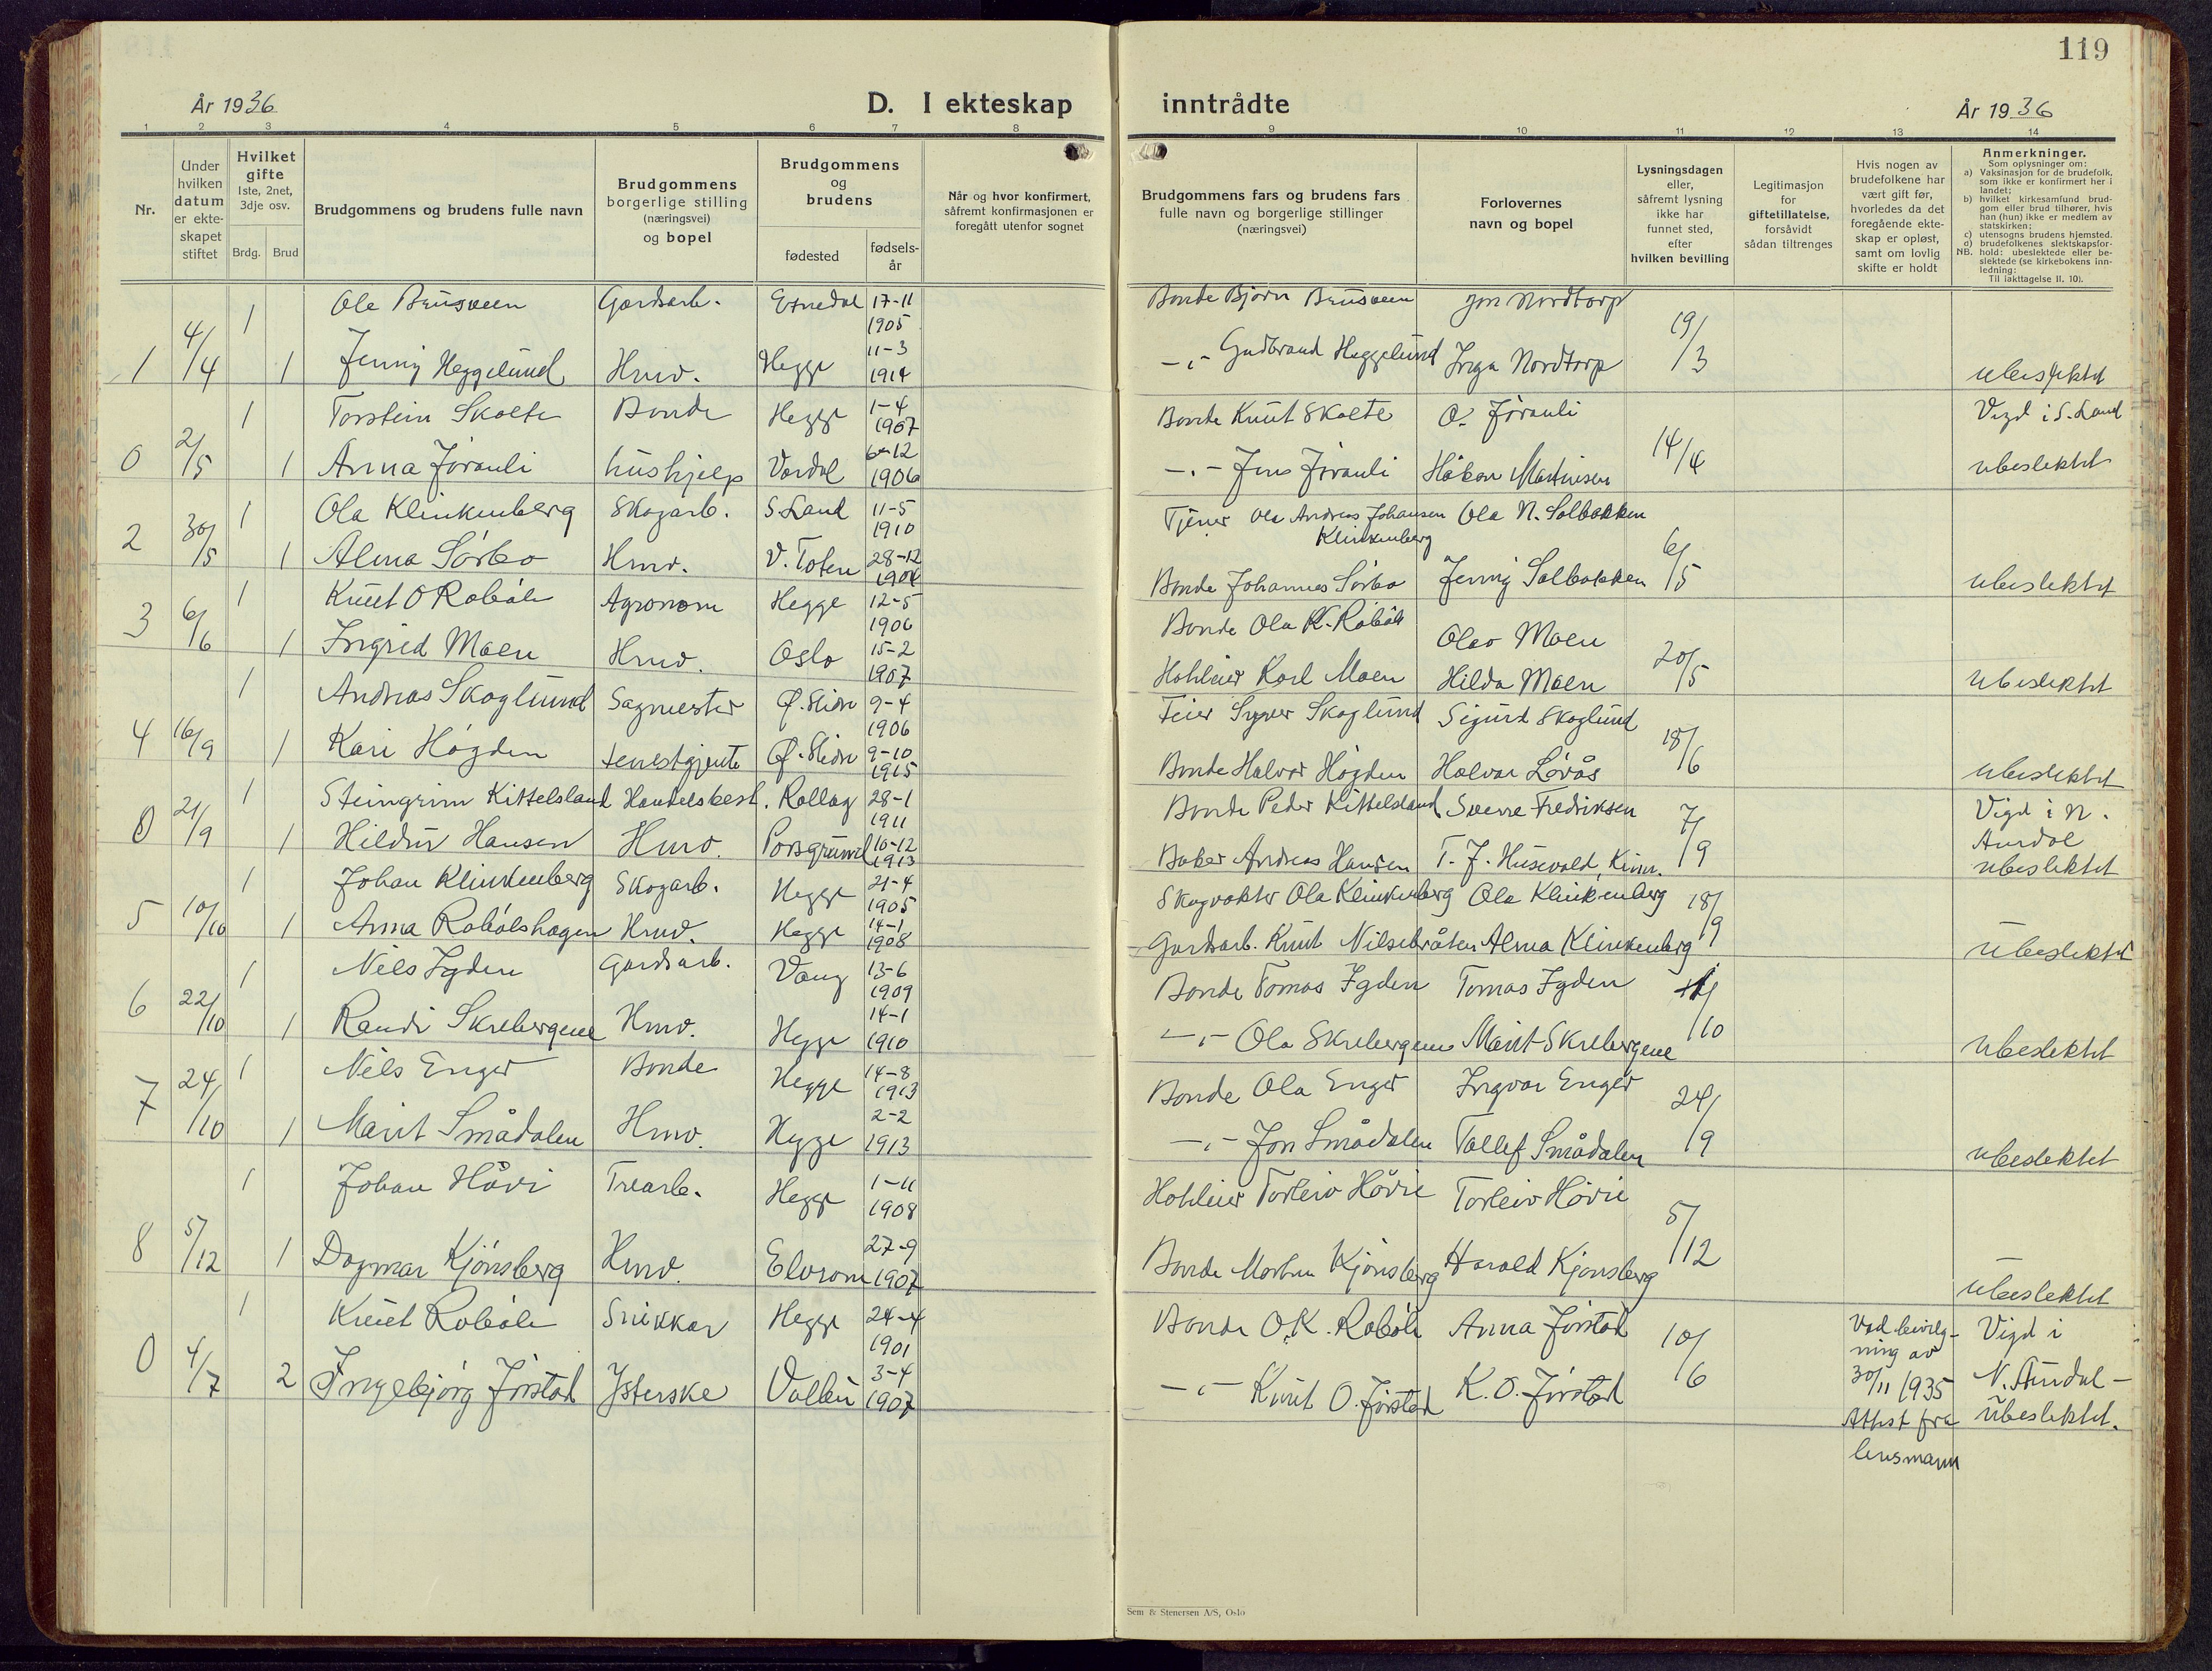 119
År 1936
D. I ekteskap inntrådte
År 1936
1 2 3 4 5 6 7 8 9 10 11 12 13 14
Nr.
Under hvilken datum er ekteskapet stiftet
Hvilket gifte
1ste, 2net, 3dje osv.
Brdg. Brud
Brudgommens og brudens fulle navn
Brudgommens borgerlige stilling (næringsvei) og bopel
Brudgommens og brudens
fødested
fødsels-år
Når og hvor konfirmert, såfremt konfirmasjonen er foregått utenfor sognet
Brudgommens fars og brudens fars fulle navn og borgerlige stillinger (næringsvei)
Forlovernes navn og bopel
Lysningsdagen eller, såfremt lysning ikke har funnet sted, efter hvilken bevilling
Legitimasjon for giftetillatelse, forsåvidt sådan tiltrenges
Hvis nogen av brudefolkene har vært gift før, hvorledes da det foregående ekteskap er opløst, samt om lovlig skifte er holdt
Anmerkninger.
Som oplysninger om:
a) Vaksinasjon for de brudefolk, som ikke er konfirmert her i landet;
b) hvilket kirkesamfund brudgom eller brud tilhører, hvis han (hun) ikke er medlem av statskirken;
c) utensogns brudens hjemsted.
d) brudefolkenes slektskapsforhold: ubeslektede eller beslektede (se kirkebokens innledning:
NB.
Til iakttagelse II. 10).
1 4/4 1 Ole Brusveen Gardsarb. Etnedal 17-11 1905 Bonde Bjørn Brusveen Jon Nordtorp 19/3
1 Jenny Heggelund Hmv. Hegge 11-3 1914 -"- Gudbrand Heggelund Inga Nordtorp ubeslektet
0 2/5 1 Torstein Skolte Bonde Hegge 1-4 1907 Bonde Knut Skolte O. Jøranli 14/4 Vigd i S. Land
1 Anna Jøranli hushjelp Vardal 6-12 1906 -"- Jens Jøranli Håkon Martinsen ubeslektet
2 30/5 1 Ola Klinkenberg Skogarb. S. Land 11-5 1910 Tjener Ole Andreas Johansen Klinkenberg Ola N. Solbakken 6/5
1 Alma Sørbo Hmv. V. Toten 28-12 Bonde Johannes Sørbo Jenny Solbakken ubeslektet
3 6/6 1 Knut O Robøle Agronom Hegge 12-5 1906 Bonde Ola K. Robøle Olav Moen 20/5
1 Ingrid Moen Hmv. Oslo 15-2 1907 Karl Moen Hilda Moen ubeslektet
4 16/9 1 Andreas Skoglund Sagmester Ø. Slidre 9-4 1906 Feier Syver Skoglund Sigurd Skoglund 18/6
1 Kari Høgden tenestgjente Ø. Slidre 9-10 1915 Bonde Halvor Høgden Halvor Løvås ubeslektet
0 21/9 1 Steingrim Kittelsland Handelsbest. Rollag 28-1 1911 Bonde Peder Kittelsland Sverre Fredriksen 7/9 Vigd i N. Aurdal
1 Hildur Hansen Hmv. Porsgrund 10-12 1913 Baker Andreas Hansen T. J. Husevold, ubeslektet
5 10/10 1 Johan Klinkenberg Skogarb. Hegge 21-4 1905 Skogvokter Ola Klinkenberg Ola Klinkenberg 18/9
1 Anna Robølshagen Hmv. Hegge 14-1 1908 Gardsarb. Knut Nilsebråten Alma Klinkenberg ubeslektet
6 22/10 1 Nils Igden Gardsarb. Vang 13-6 1909 Bonde Tomas Igden Tomas Igden
1 Randi Skrebergene Hmv. Hegge 14-1 1910 -"- Ola Skrebergene Marit Skrebergene ubeslektet
7 24/10 1 Nils Enger Bonde Hegge 14-8 1913 Bonde Ola Enger Ingvar Enger 24/9
1 Marit Smådalen Hmv. Hegge 2-2 1913 -"- Jon Smådalen Tollef Smådalen ubeslektet
8 5/12 1 Johan Håvi Trearb. Hegge 1-11 1908 Torleiv Håvie Torleiv Håvie 5/12
1 Dagmar Kjønsberg Hmv. Elverum 27-9 1907 Bonde Morten Kjønsberg Harald Kjønsberg ubeslektet
0 4/7 1 Knut Robøle Snikkar Hegge 24-4 1901 Bonde O.K. Robøle Anna Jørstad 10/6 Ved bevilgning av 30/11 1935 Attest fra lensmann Vigd i N. Aurdal -
2 Ingebjørg Jørstad Ysterske Volbu 3-4 1907 -"- Knut O. Jørstad K. O. Jørstad ubeslektet.
Sem & Stenersen A/S, Oslo